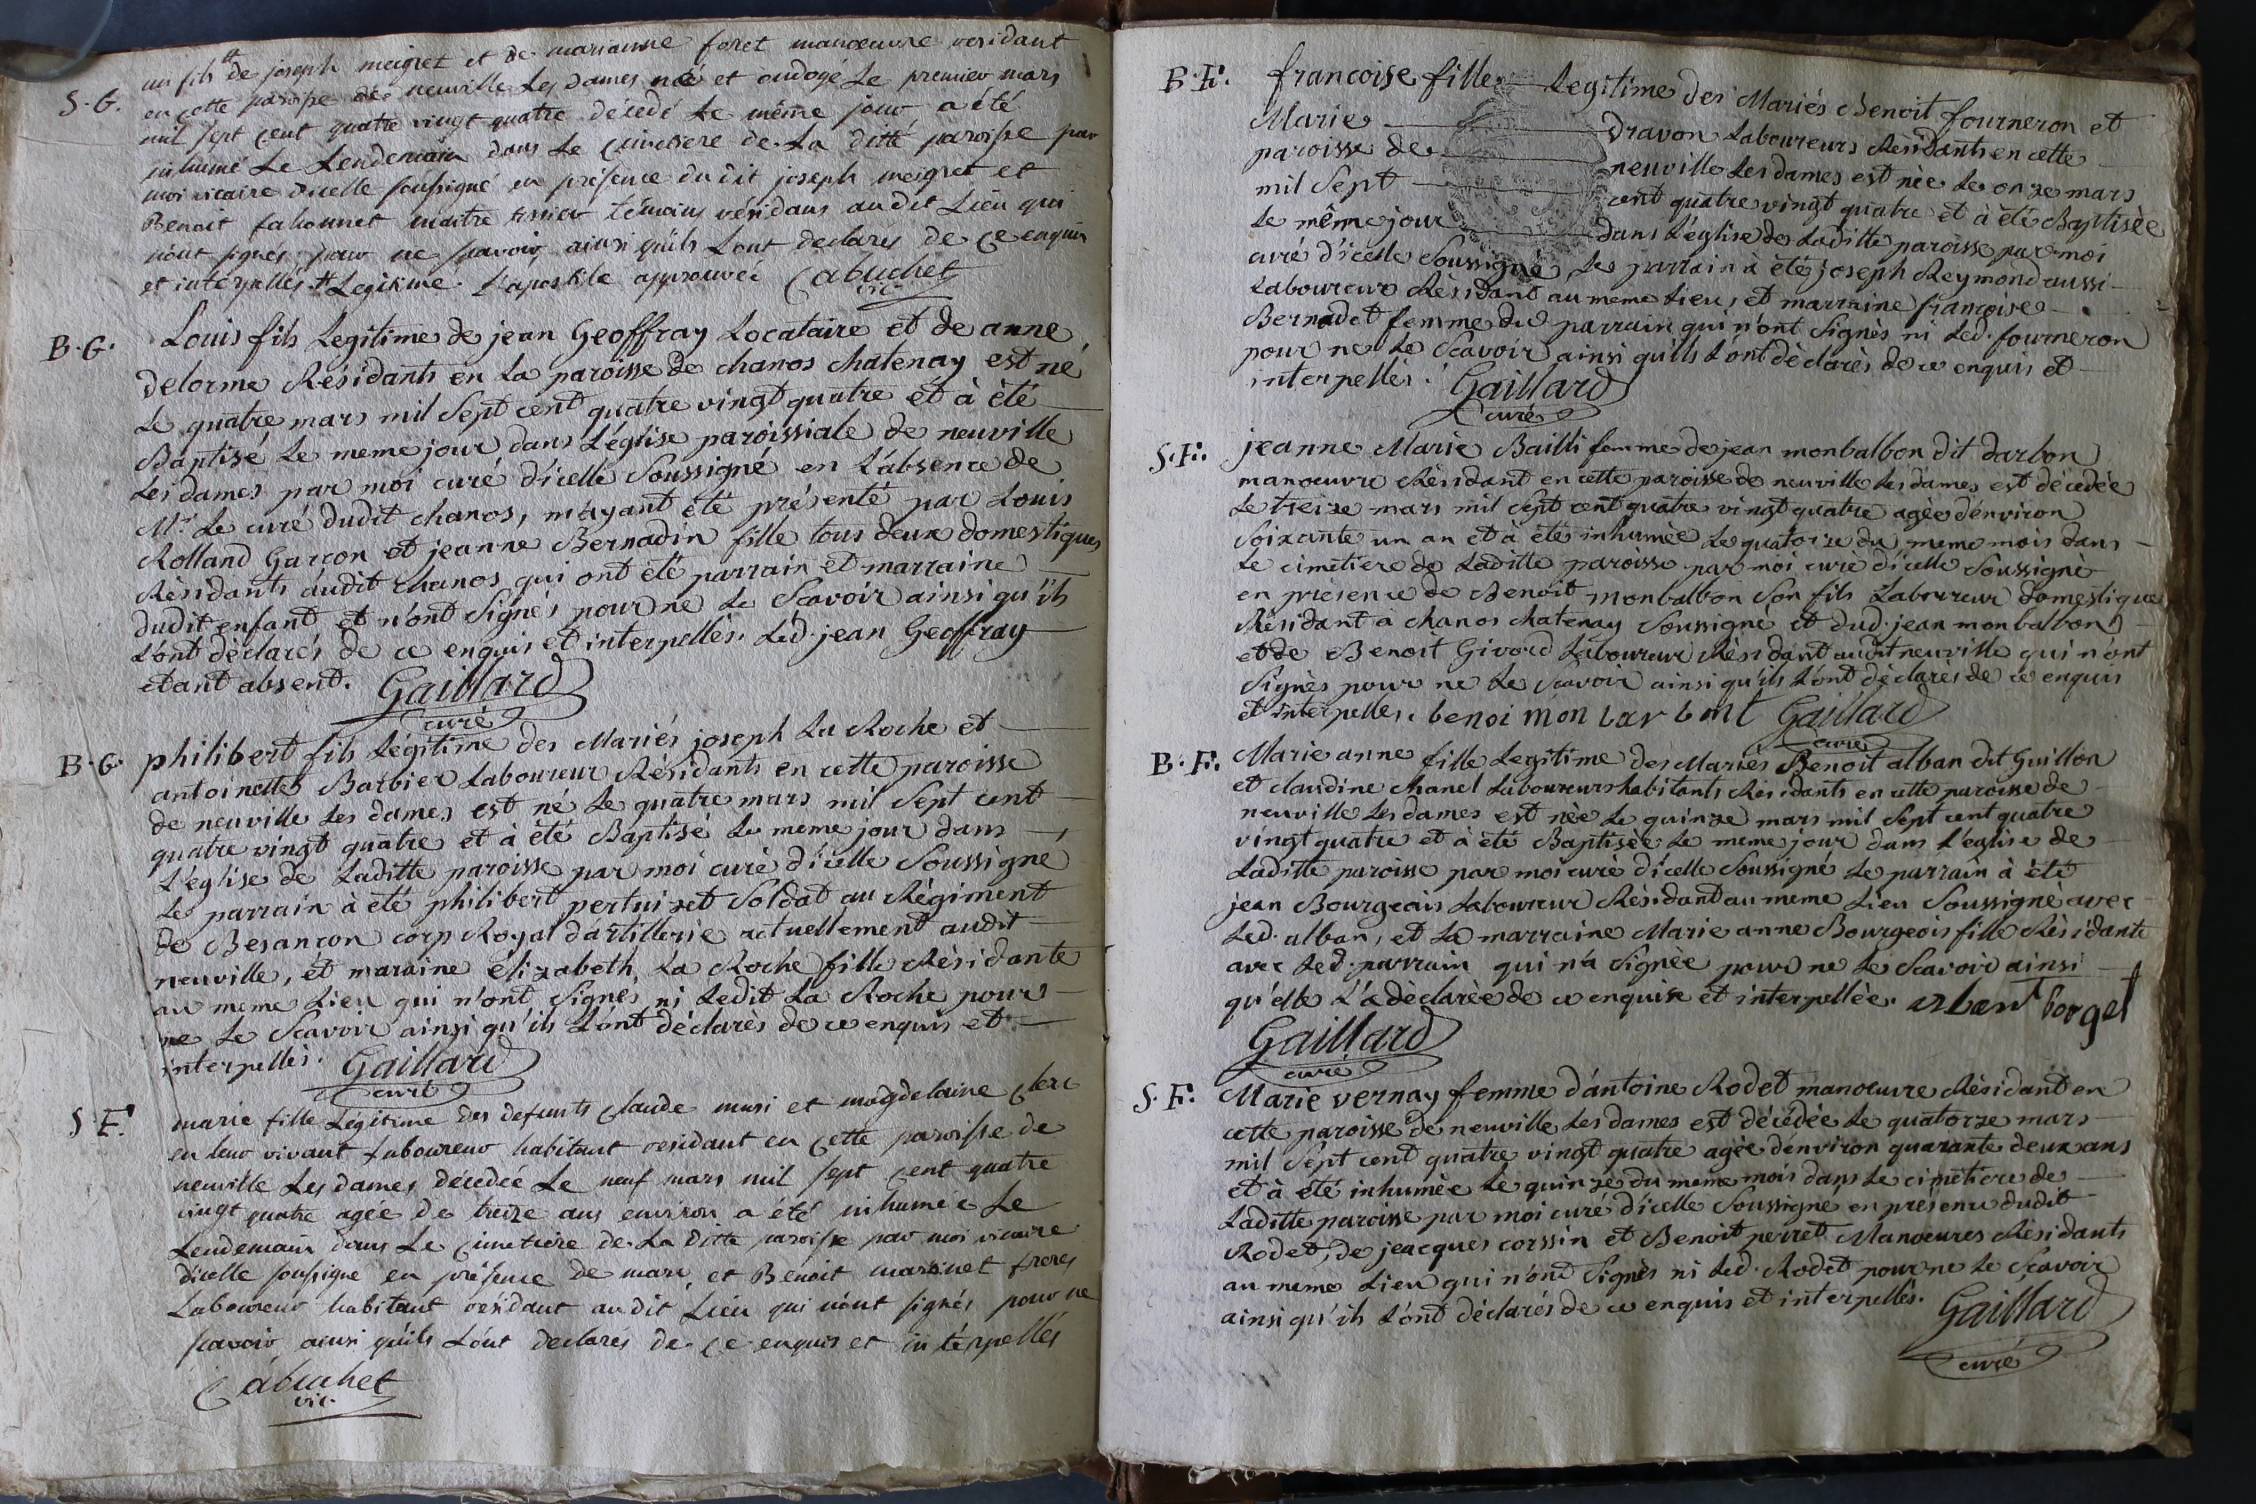 S. G.
un fils # de joseph meigret et de marianne foret manœuvre résidant
en cette paroisse de neuville Les Dames né et ondoyé Le premier mars
mil sept cent quatre vingt quatre décédé Le même jour a été
inhumé Le Lendemain dans Le cimetiere de La ditte paroisse par
moi vicaire d'icelle soussigné en présence du dit joseph meigret et
Benoit maitre tissier témoins résidans au dit Lieu qui
n'ont signés pour ne savoir ainsi qu'ils L'ont declarés de ce enquis
et interpellés. # Legitime. L'apostile approuvée Cabuchet
vic.
B. G.
Louis fils Legitime de jean Geoffray Locataire et de anne
delorme Résidants en La paroisse de chanos chatenay est né
Le quatre mars mil Sept cent quatre vingt quatre et à été
Baptisé Le meme jour dans L'église paroissiale de neuville
Les dames par moi curé d'icelle Soussigné en L'absence de
Mr Le curé dudit chanos, m'ayant été présenté par Louis
Rolland Garçon et jeanne Bernadin fille tous deux domestiques
Résidants audit chanos qui ont été parrain et marraine
dudit enfant et n'ont Signés pour ne Le Scavoir ainsi qu'ils
L'ont déclarés de ce enquis et interpellés. Led. jean Geoffray
etant absent. Gaillard
curé
B. G.
philibert fils Légitime des Mariés joseph La Roche et
antoinette Barbier Laboureur Résidants en cette paroisse
de neuville Les dames est né Le quatre mars mil Sept cent
quatre vingt quatre et à été Baptisé Le meme jour dans
L'église de Laditte paroisse par moi curé d'icelle Soussigné
Le parrain à été philibert pertuizet Soldat au Régiment
de Besançon corp Royal d'artillerie actuellement audit
neuville, et maraine elizabeth La Roche fille Résidante
au meme Lieu qui n'ont Signés ni Ledit La Roche pour
ne Le Scavoir ainsi qu'ils L'ont déclarés de ce enquis et
interpellés. Gaillard
curé
S. F.
marie fille Légitime des defunts Claude musi et magdelaine Clerc
en leur vivant Laboureur habitant residant en Cette paroisse de
neuville Les dames décédée Le neuf mars mil sept cent quatre
vingt quatre agée de treize ans environ a été inhumée Le
Lendemain dans Le Cimetiere de La ditte paroisse par moi vicaire
d'icelle soussigné en présence de marc et Benoit marinet freres
Laboureur habitant résidant au dit Lieu qui n'ont signés pour ne
scavoir ainsi qu'ils L'ont declarés de ce enquis et interpellés
Cabuchet
vic.
B. F.
francoise fille Legitime des Mariés Benoit fourneron et
Marie dravon Laboureurs Residants en cette
paroisse de neuville Les dames est née Le onze mars
mil Sept cent quatre vingt quatre et à été Baptisée
Le même jour dans L'église de Laditte paroisse par moi
curé d'icelle Soussigné, Le parrain à été joseph Reymond aussi
Laboureur Résidant au meme Lieu, et marraine françoise
Bernadet femme du parrain qui n'ont Signés ni Led. fourneron
pour ne Le Scavoir ainsi qu'ils L'ont déclarés de ce enquis et
interpellés. Gaillard
curé
S. F.
jeanne Marie Bailli femme de jean monbalbon dit darbon
manoeuvre Résidant en cette paroisse de neuville Les dames est décédée
Le treize mars mil Sept cent quatre vingt quatre agée d'environ
Soixante un an et à été inhumée Le quatorze du meme mois dans
Le cimetiere de Laditte paroisse par moi curé d'icelle Soussigné
en présence de Benoit monbalbon Son fils Laboureur domestique
Résidant a chanos chatenay Soussigné et dud. jean monbalbon
et de Benoit Givord Laboureur Résidant audit neuville qui n'ont
Signés pour ne Le Scavoir ainsi qu'ils L'ont déclarés de ce enquis
et interpellés. benoi mon barbont Gaillard
curé
B. F.
Marie anne fille Legitime des Mariés Benoit alban dit Guillon
et claudine chanel Laboureurs habitants Residants en cette paroisse de
neuville Les dames est née Le quinze mars mil Sept cent quatre
vingt quatre et à été Baptisée Le meme jour dans L'église de
Laditte paroisse par moi curé d'icelle Soussigné Le parrain à été
jean Bourgeois Laboureur Résidant au meme Lieu Soussigné avec
Led. alban, et La marraine Marie anne Bourgeois fille Résidante
avec Led. parrain qui n'a Signée pour ne Le Scavoir ainsi
qu'elle L'a déclarée de ce enquise et interpellée. alban borget
Gaillard
curé
S. F.
Marie vernay femme d'antoine Rodet manoeuvre Résidant en
cette paroisse de neuville Les dames est décédée Le quatorze mars
mil Sept cent quatre vingt quatre agée d'environ quarante deux ans
et à été inhumée Le quinze du meme mois dans Le cimetiere de
Laditte paroisse par moi curé d'icelle Soussigné en présence dudit
Rodet, de jeacques corssin et Benoit perret Manoeuvres Résidants
au meme Lieu qui n'ont Signés ni Led. Rodet pour ne Le Scavoir
ainsi qu'ils L'ont déclarés de ce enquis et interpellés. Gaillard
curé